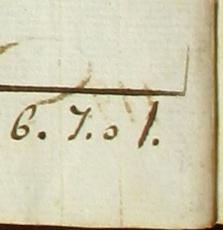 6. 7. 0 1.